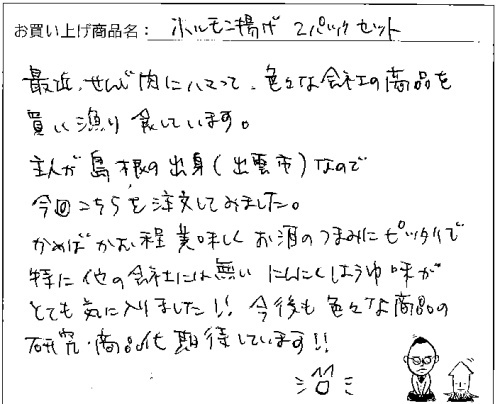 お買い上げ商品名： ホルモン揚げ 2パックセット
最近、せんじ肉にハマって、色々な会社の商品を
買い漁り 食しています。
主人が 島根の出身(出雲市)なので
今回こちらを注文してみました。
かめば かむ程 美味しく お酒のつまみにピッタリで
特に他の会社には無い にんにくしょうゆ味が
とても気に入りました!! 今後も色々な商品の
研究・商品化 期待しています!!